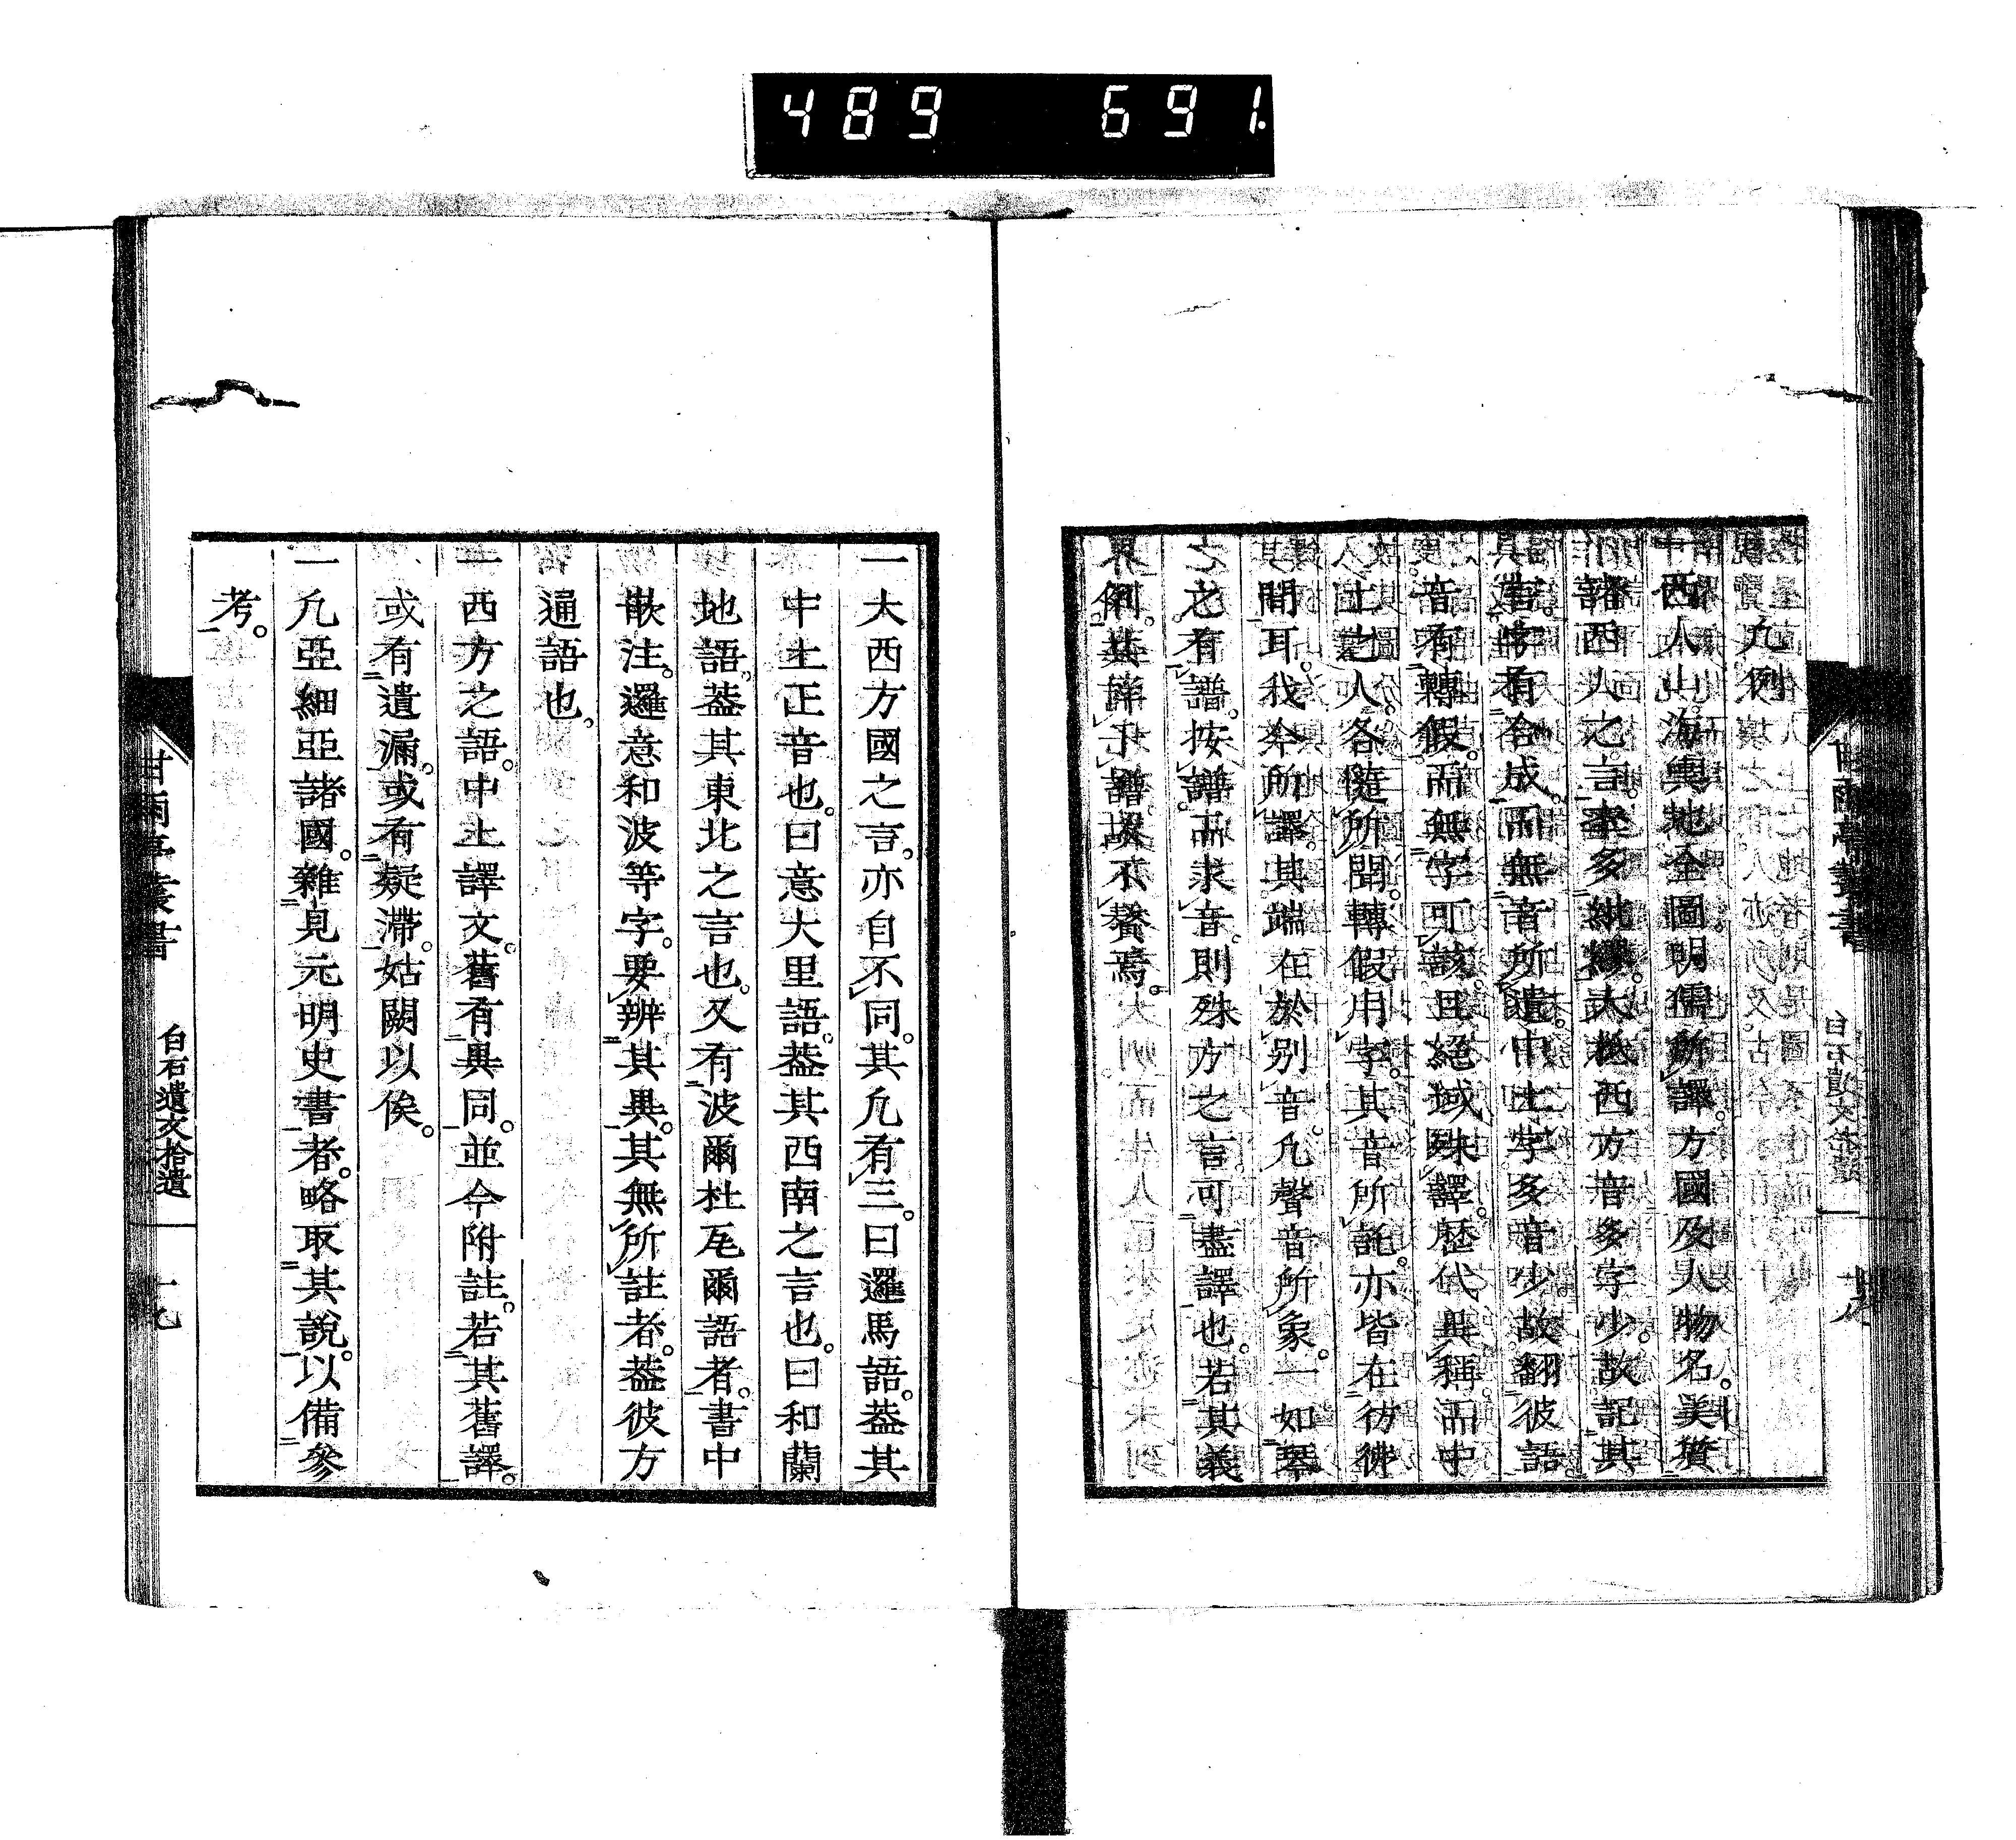 489 691.
凡例
一西人山海輿地全圖。明儒所譯。方國及人物名。美贊
諸西人之言。率多紕繆。大抵西方音多字少。故記其
言。字有合成。而無音所遺。中土字多音少。故翻彼語。
音有轉假。而無字可該。且絕域殊譯。歷代異稱。而中
土之人。各隨所聞。轉假用字。其音所託。亦皆在彷彿
間耳。我今所譯。其端在於別音。凡聲音所象。一如琴
之有譜。按譜而求音。則殊方之言。可盡譯也。若其義
例。其詳于譜。故不贅焉。
甘雨亭叢書
白石遺文拾遺
一大西方國之言。亦自不同。其凡有三。曰邏馬語。葢其
中土正音也。曰意大里語。葢其西南之言也。曰和蘭
地語。葢其東北之言也。又有波爾杜瓦爾語者。書中
嵌注。邏意和波等字。要辨其異。其無所註者。葢彼方
通語也。
一西方之語。中土譯文。舊有異同。並今附註。若其舊譯。
或有遺漏。或有疑滯。姑闕以俟。
一凡亞細亞諸國。雜見元明史書者。略取其說。以備參
考。
甘雨亭叢書
白石遺文拾遺
十九